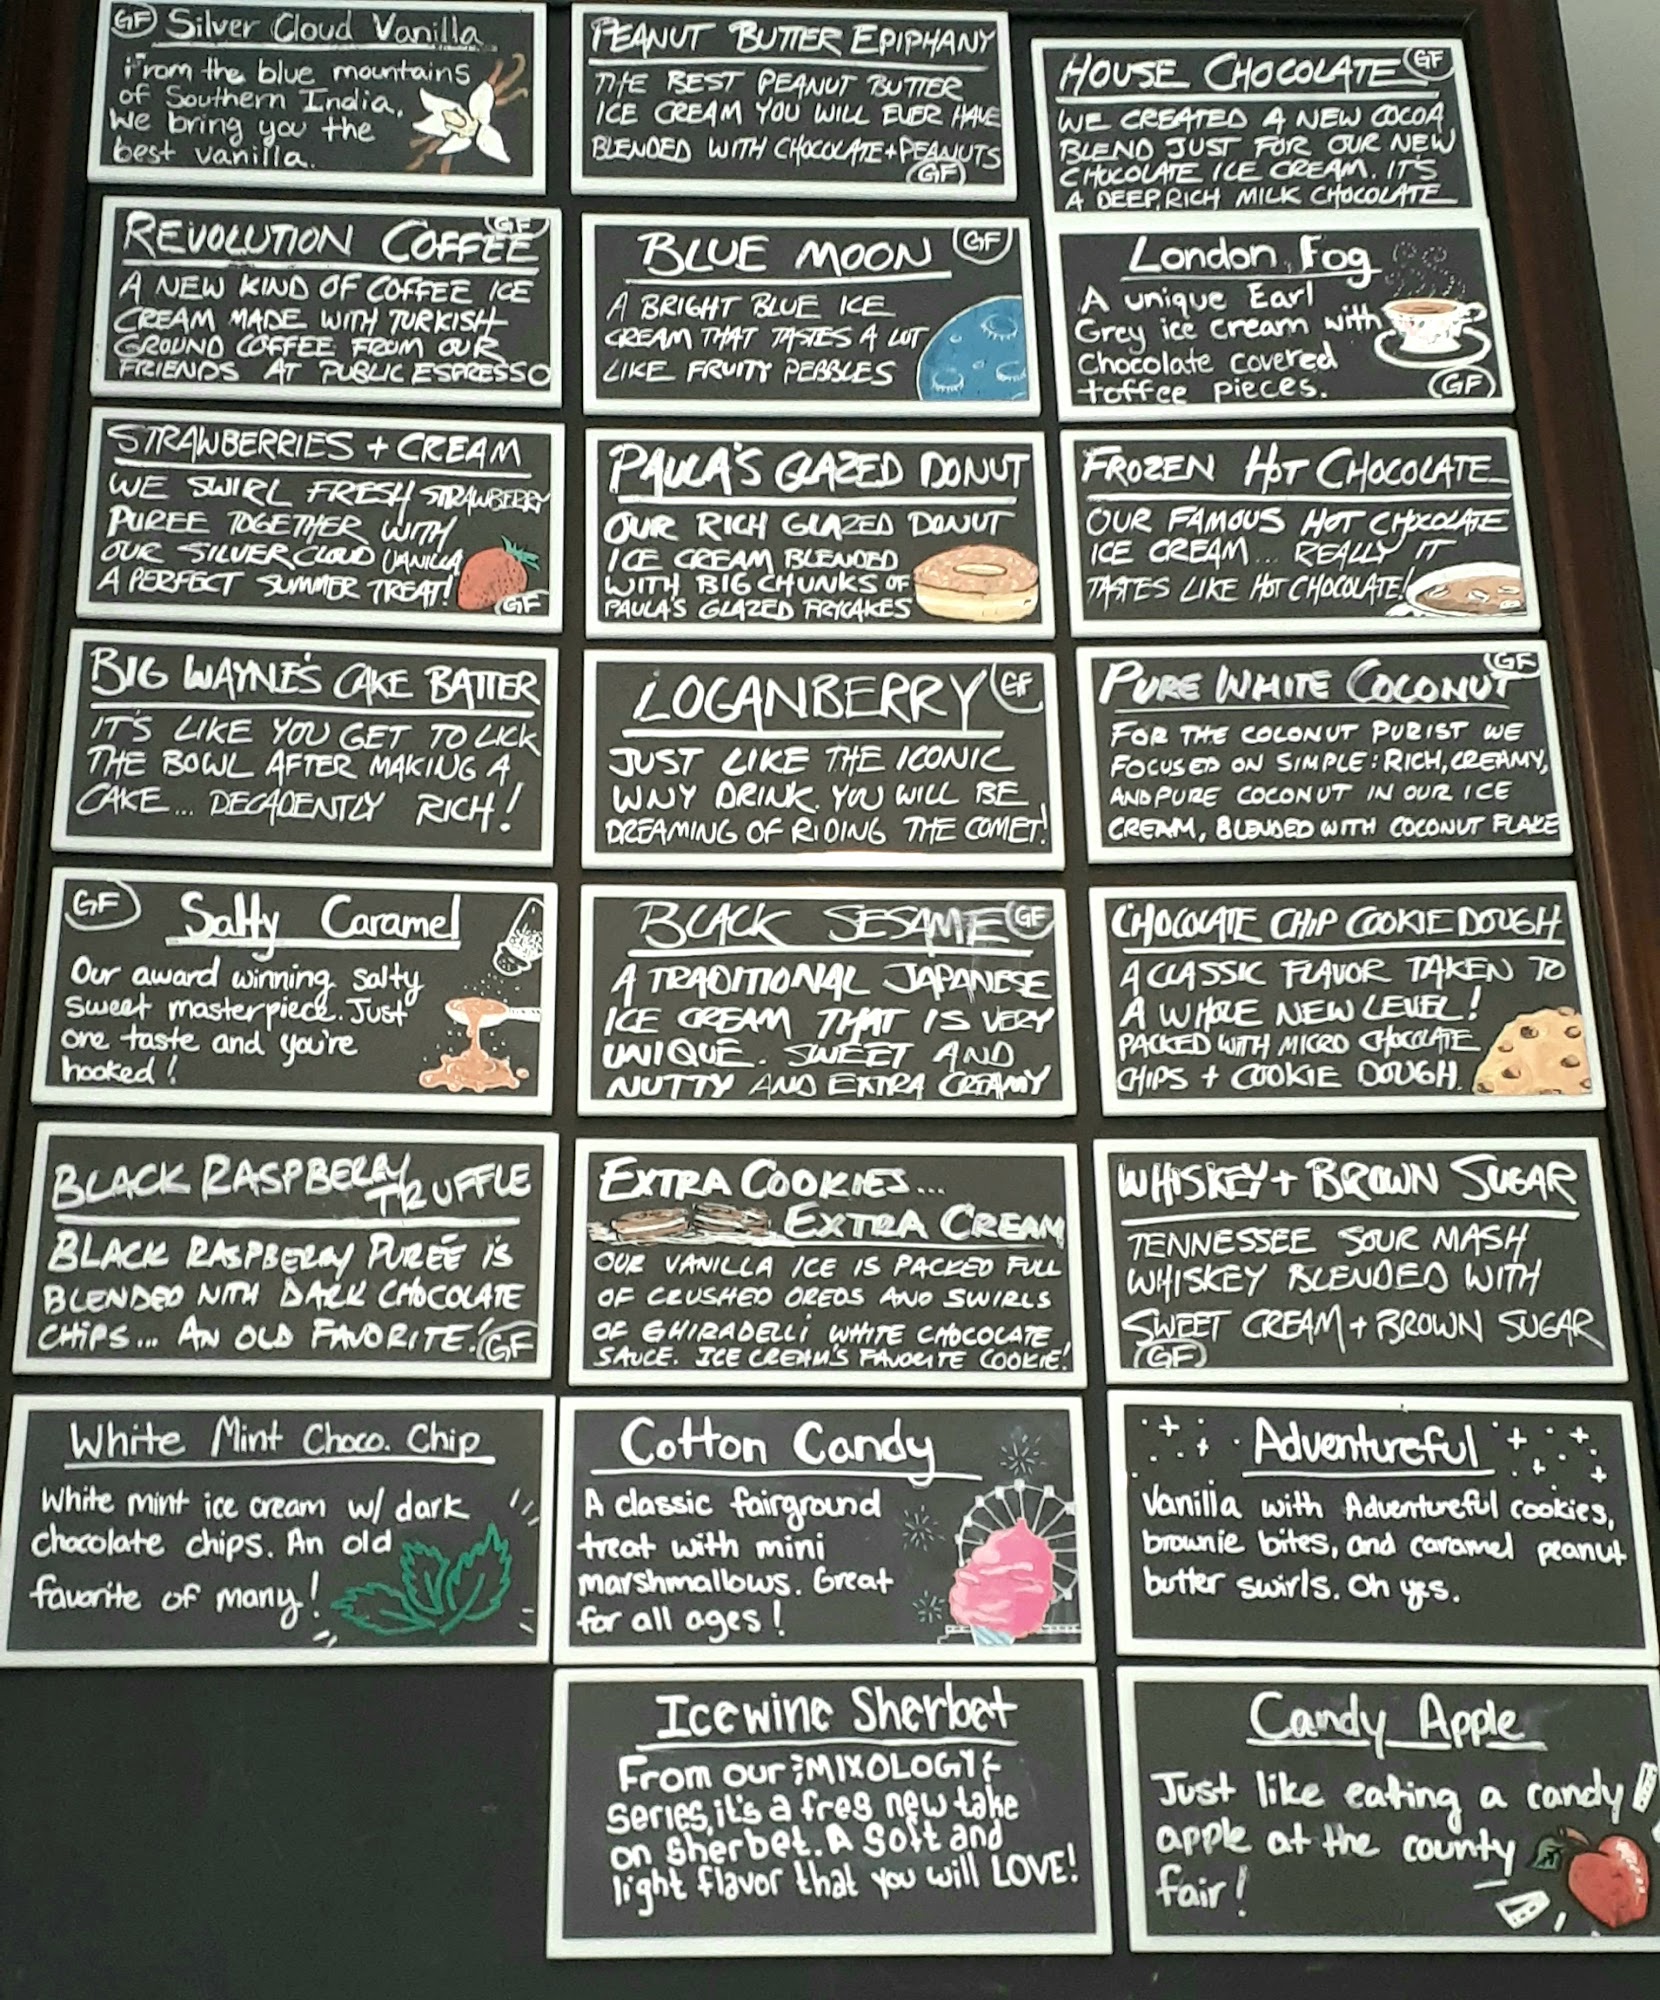 GF Silver Cloud Vanilla
From the blue mountains
of Southern India,
We bring you the
best vanilla.
PEANUT BUTTER EPIPHANY
THE BEST PEANUT BUTTER
ICE CREAM YOU WILL EVER HAVE
BLENDED WITH CHOCOLATE + PEANUTS
GF
HOUSE CHOCOLATE GF
WE CREATED A NEW COCOA
BLEND JUST FOR OUR NEW
CHOCOLATE ICE CREAM. IT'S
A DEEP, RICH MILK CHOCOLATE
REVOLUTION COFFEE GF
A NEW KIND OF COFFEE ICE
CREAM MADE WITH TURKISH
GROUND COFFEE FROM OUR
FRIENDS AT PUBLIC ESPRESSO
BLUE MOON GF
A BRIGHT BLUE ICE
CREAM THAT TASTES A LOT
LIKE FRUITY PEBBLES
London Fog
A unique Earl
Grey ice cream with
Chocolate covered
toffee pieces.
GF
STRAWBERRIES + CREAM
WE SWIRL FRESH STRAWBERRY
PUREE TOGETHER WITH
OUR SILVER CLOUD VANILLA
A PERFECT SUMMER TREAT!
GF
PAULA'S GLAZED DONUT
OUR RICH GLAZED DONUT
ICE CREAM BLENDED
WITH BIG CHUNKS OF
PAULA'S GLAZED FRYCAKES
FROZEN HOT CHOCOLATE
OUR FAMOUS HOT CHOCOLATE
ICE CREAM... REALLY IT
TASTES LIKE HOT CHOCOLATE!
BIG WAYNE'S CAKE BATTER
IT'S LIKE YOU GET TO LICK
THE BOWL AFTER MAKING A
CAKE... DECADENTLY RICH!
LOGANBERRY GF
JUST LIKE THE ICONIC
WNY DRINK. YOU WILL BE
DREAMING OF RIDING THE COMET!
PURE WHITE COCONUT GF
FOR THE COCONUT PURIST WE
FOCUSED ON SIMPLE: RICH, CREAMY,
AND PURE COCONUT IN OUR ICE
CREAM, BLENDED WITH COCONUT FLAKE
GF Salty Caramel
Our award winning salty
sweet masterpiece. Just
one taste and you're
hooked!
BLACK SESAME GF
A TRADITIONAL JAPANESE
ICE CREAM THAT IS VERY
UNIQUE. SWEET AND
NUTTY AND EXTRA CREAMY
CHOCOLATE CHIP COOKIE DOUGH
A CLASSIC FLAVOR TAKEN TO
A WHOLE NEW LEVEL!
PACKED WITH MICRO CHOCOLATE
CHIPS + COOKIE DOUGH.
BLACK RASPBERRY TRUFFLE
BLACK RASPBERRY PUREÉ IS
BLENDED WITH DARK CHOCOLATE
CHIPS... AN OLD FAVORITE! GF
EXTRA COOKIES...
EXTRA CREAM
OUR VANILLA ICE IS PACKED FULL
OF CRUSHED OREOS AND SWIRLS
OF GHIRADELLI WHITE CHOCOLATE
SAUCE. ICE CREAM'S FAVORITE COOKIE!
WHISKEY + BROWN SUGAR
TENNESSEE SOUR MASH
WHISKEY BLENDED WITH
SWEET CREAM + BROWN SUGAR
GF
White Mint Choco. Chip
White mint ice cream w/ dark
chocolate chips. An old
favorite of many!
Cotton Candy
A classic fairground
treat with mini
marshmallows. Great
for all ages!
Adventureful
Vanilla with Adventureful cookies,
brownie bites, and caramel peanut
butter swirls. Oh yes.
Icewine Sherbet
From our MIXOLOGY
series, it's a fres new take
on Sherbet. A Soft and
light flavor that you will LOVE!
Candy Apple
Just like eating a candy
apple at the county
fair!